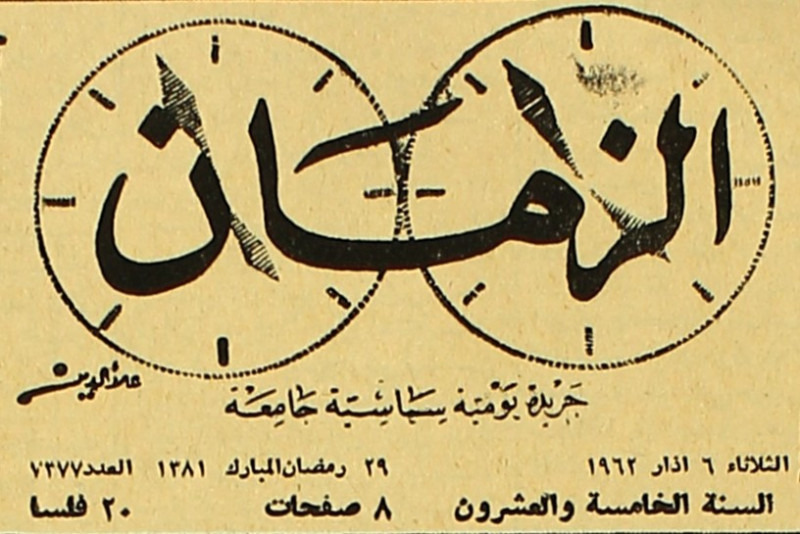 الزمان
علاء الدين
جَريدة يَوميَة سِيَاسِيَّة جَامِعَة
الثلاثاء ٦ اذار ١٩٦٢ ٢٩ رمضان المبارك ١٣٨١ العدد ٧٣٧٧
السنة الخامسة والعشرون ٨ صفحات ٢٠ فلسا